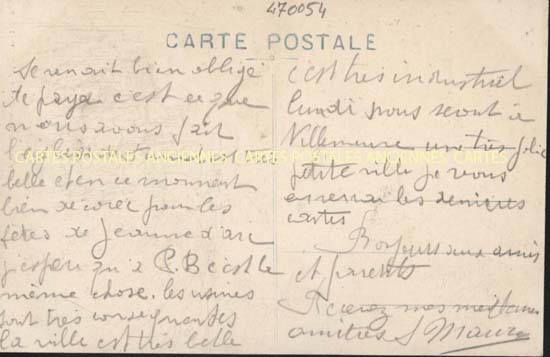 470054
CARTE POSTALE
serenait bien oblige
de payer c'est ce que
nous avons fait
CARTES POSTALES ANCIENNES CARTES POSTALES ANCIENNES CARTES
belle et en ce moment
bien decorée pour les
fêtes de Jeanne d'arc
j'espere qu'a P.B c'est le
même chose. les usines
sont très consequentes
la ville est très belle
c'est très industriel
lundi nous seront à
Villemeure une très jolie
petite ville je vous
enverrai les dernières
cartes
Bonjours aux amis
et parents
Recevez mes meilleures
amitiés S Maure